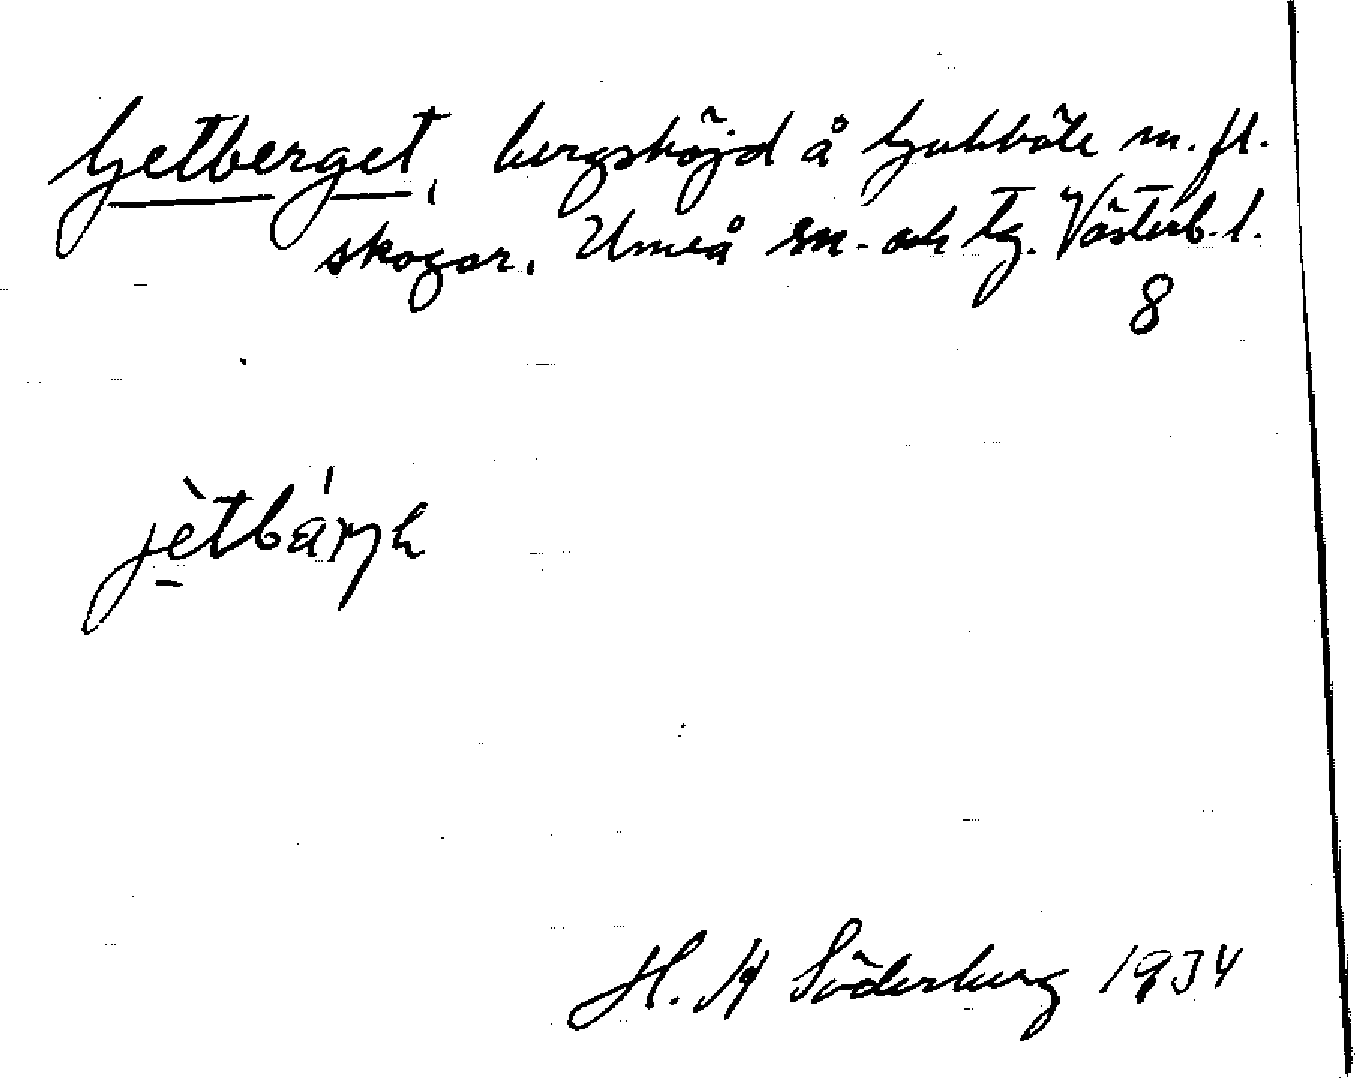 Getberget, bergshöjd å Gubböle m. fl.
skogar. Umeå sn. och tg. Västerb. l.
8
jètbárjɛ
H. Söderberg 1934